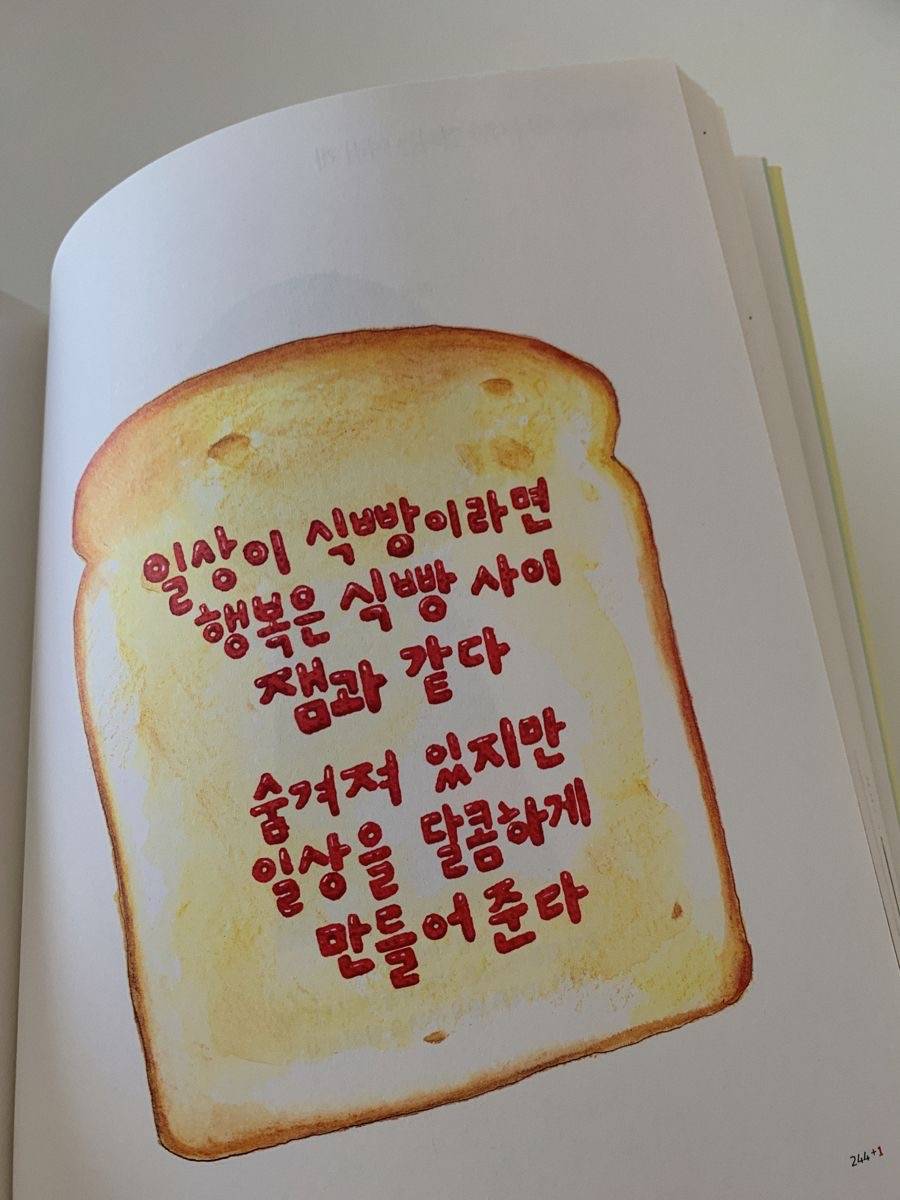 일상이 식빵이라면
행복은 식빵 사이
잼과 같다
숨겨져 있지만
일상을 달콤하게
만들어 준다
244+1